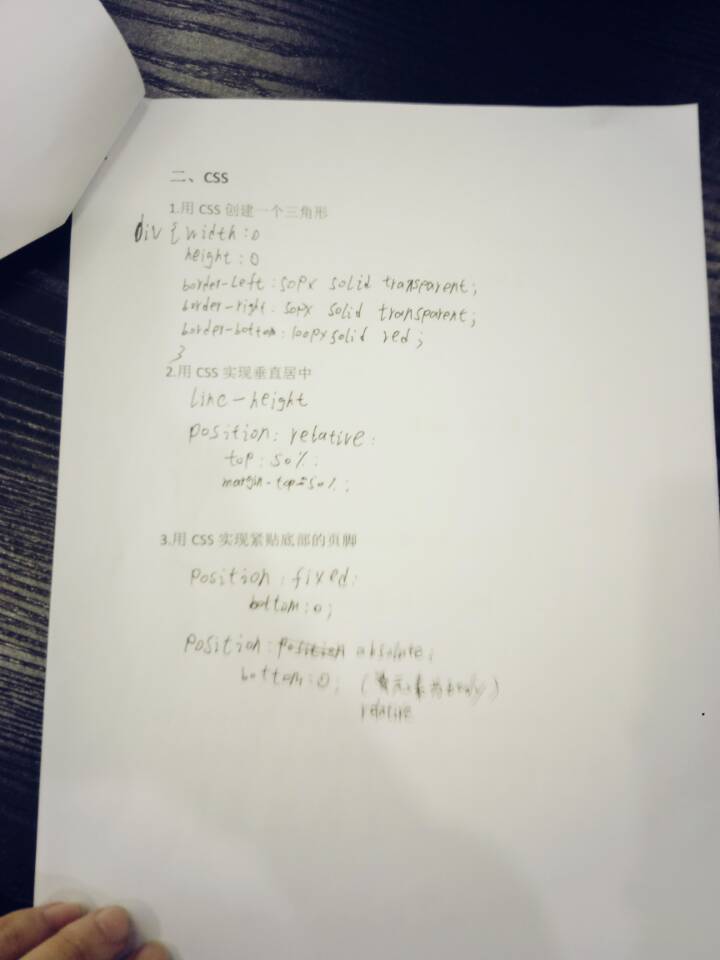 二、CSS
1.用 CSS 创建一个三角形
div { width : 0
height : 0
border-left : 50px solid transparent;
border-right : 50px solid transparent;
border-bottom : 100px solid red ;
}
2.用 CSS 实现垂直居中
line-height
position: relative;
top : 50%;
margin-top=50%;
3.用 CSS 实现紧贴底部的页脚
position : fixed;
bottom : 0;
position : absolute;
bottom : 0; (元素为body)
relative